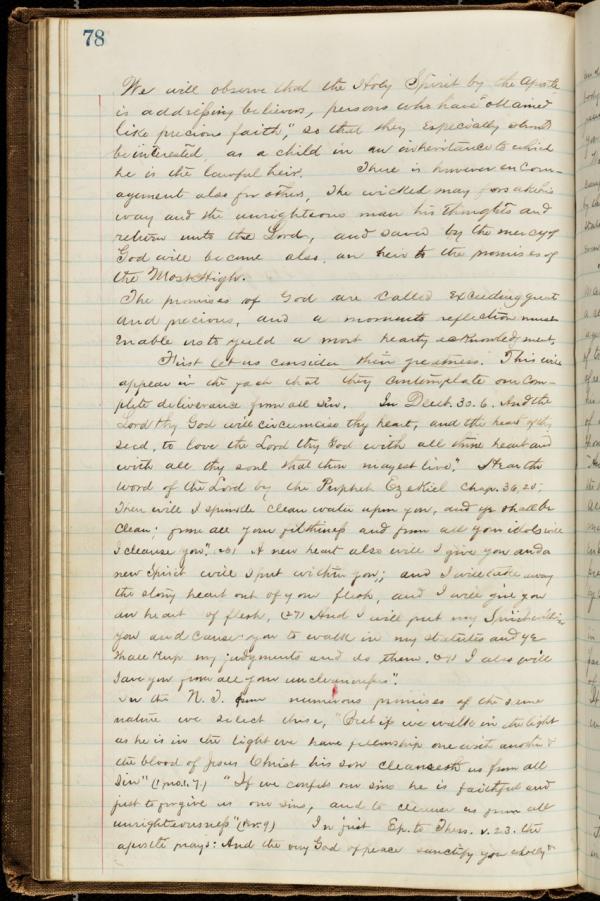 78
We will observe that the Holy Spirit by the Apostle
is addressing believers, persons who have "obtained
like precious faith," so that they especially should
be interested, as a child in an inheritance to which
he is the lawful heir. There is however encour-
agement also for others, the wicked may forsake his
way and the unrighteous man his thoughts and
return unto the Lord, and saved by the mercy of
God will become also, an heir to the promises of
the Most High.
The promises of God are called exceeding great
and precious, and a moments reflection must
enable us to yield a most hearty acknowledgment.
First let us consider their greatness. This will
appear in the fact that they contemplate our com-
plete deliverance from all sin. In Deut. 30.6. And the
Lord thy God will circumcise thy heart, and the heart of thy
seed, to love the Lord thy God with all thine heart and
with all thy soul that thou mayest live." Hear the
word of the Lord by the Prophet Ezekiel Chap. 36,25,
Then will I sprinkle clean water upon you, and ye shall be
clean; from all your filthiness and from all your idols will
I cleanse you". A new heart also will I give you and a
new Spirit will I put within you; and I will take away
the stony heart out of your flesh, and I will give you
an heart of flesh, (27) And I will put my Spirit within
you and cause you to walk in my statutes and ye
shall keep my judgments and do them. I also will
save you from all your uncleannesses".
In the N. T. from numerous promises of the same
nature we select these, "But if we walk in the light
as he is in the light we have fellowship one with another &
the blood of Jesus Christ his son cleanseth us from all
sin" "If we confess our sins he is faithful and
just to forgive us our sins, and to cleanse us from all
unrighteousness" In first Ep. to Thess. v. 23. the
apostle prays: And the very God of peace sanctify you wholly